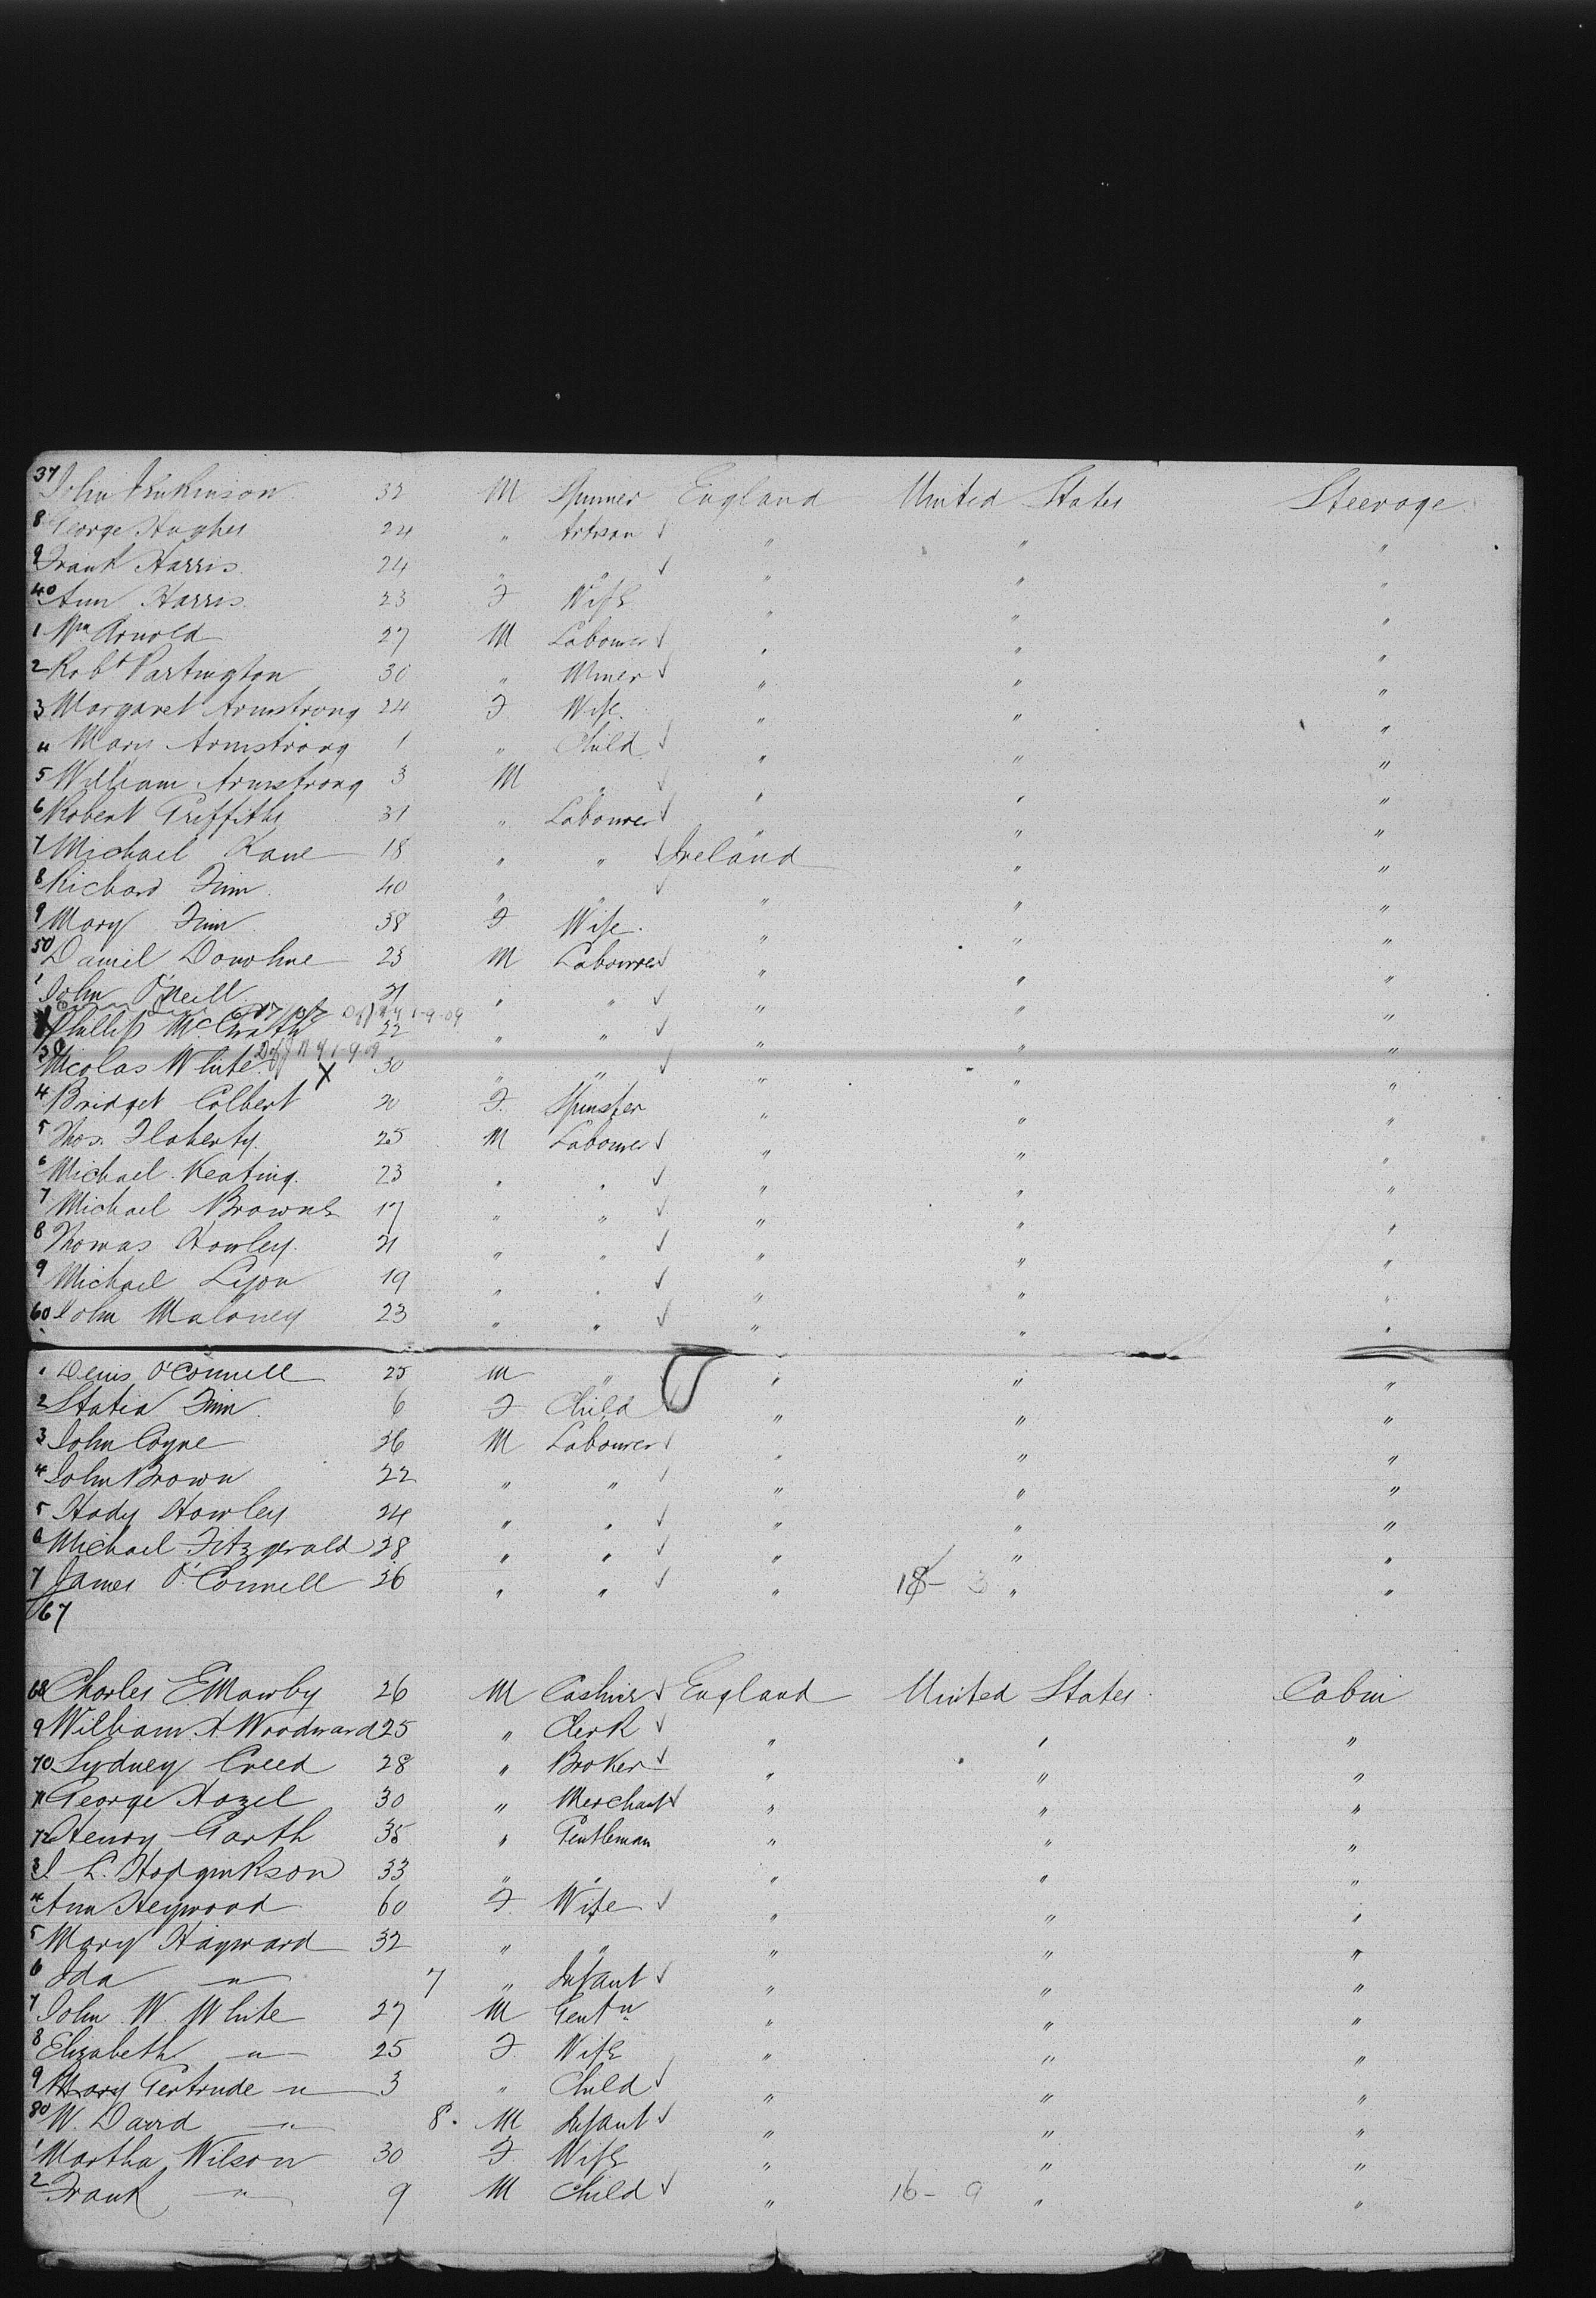 37 John Jenkinson 32 M Spinner England United States Steerage
8 George Hughes 24 " Artisan ✓ " " "
9 Frank Harris 24 " " ✓ " " "
40 Ann Harris 23 F Wife " " "
1 Wm Arnold 27 M Labourer ✓ " " "
2 Robt Partington 30 " Miner ✓ " " "
3 Margaret Armstrong 24 F Wife " " "
4 Mary Armstrong 1 " Child ✓ " " "
5 William Armstrong 3 M " ✓ " " "
6 Robert Griffiths 31 " Labourer ✓ " " "
7 Michael Kane 18 " " ✓ Ireland " "
8 Richard Finn 40 " " ✓ " " "
9 Mary Finn 38 F Wife " " "
50 Daniel Donohue 23 M Labourer ✓ " " "
1 John O'Neill 21 " " ✓ " " "
Phillip McGrath 22 " " ✓ " " "
3 Nicolas White X 30 " " ✓ " " "
4 Bridget Colbert 20 F. Spinster " " "
5 Thos. Flaherty 25 M Labourer ✓ " " "
6 Michael Keating 23 " " ✓ " " "
7 Michael Browne 17 " " ✓ " " "
8 Thomas Howley 21 " " ✓ " " "
9 Michael Lyon 19 " " ✓ " " "
60 John Maloney 23 " " ✓ " " "
1 Denis O'Connell 25 M " " " "
2 Statia Finn 6 F Child " " "
3 John Coyne 36 M Labourer ✓ " " "
4 John Brown 22 " " ✓ " " "
5 Hody Howley 24 " " ✓ " " "
6 Michael Fitzgerald 28 " " ✓ " " "
7 James O'Connell 36 " " ✓ " 18- 3 " "
67
68 Charles E Mawby 26 M Cashier ✓ England United States Cabin
9 William A Woodward 25 " Clerk ✓ " " "
70 Sydney Creed 28 " Broker ✓ " " "
71 George Hazel 30 " Merchant ✓ " " "
72 Henry Garth 35 " Gentleman " " "
3 L. Hodginkson 33 " " " " "
4 Ann Heywood 60 F. Wife ✓ " " "
5 Mary Hayward 32 " " " " "
6 Ida " 7 " Infant ✓ " " "
7 John W. White 27 M Gentn " " "
8 Elizabeth " 25 F. Wife " " "
9 Mary Gertrude " 3 " Child ✓ " " "
80 W. David " 8. M Infant ✓ " " "
1 Martha Wilson 30 F Wife " " "
2 Frank " 9 M Child ✓ " 16- 9 " "